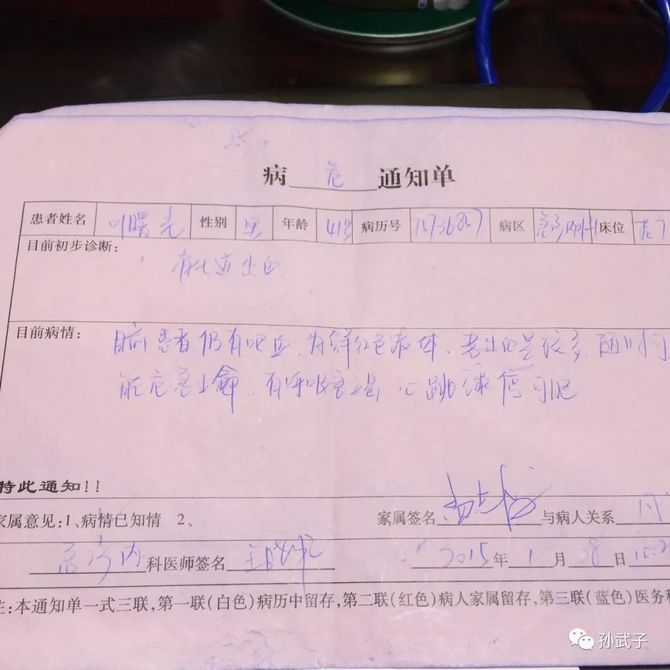 病 危 通知单
患者姓名 叶曙光 性别 男 年龄 41岁 病历号 病区 床位
目前初步诊断:
消化道出血
目前病情: 目前患者仍有呕血,为鲜红色液体,考虑出血量较多,随时可
能危害生命,有呼吸衰竭,心跳骤停可能
特此通知!!
家属意见:1、病情已知情 2、 家属签名 与病人关系
急诊内 科医师签名 2015 年 1 月 28 日
注:本通知单一式三联,第一联(白色)病历中留存,第二联(红色)病人家属留存,第三联(蓝色)医务科
孙武子